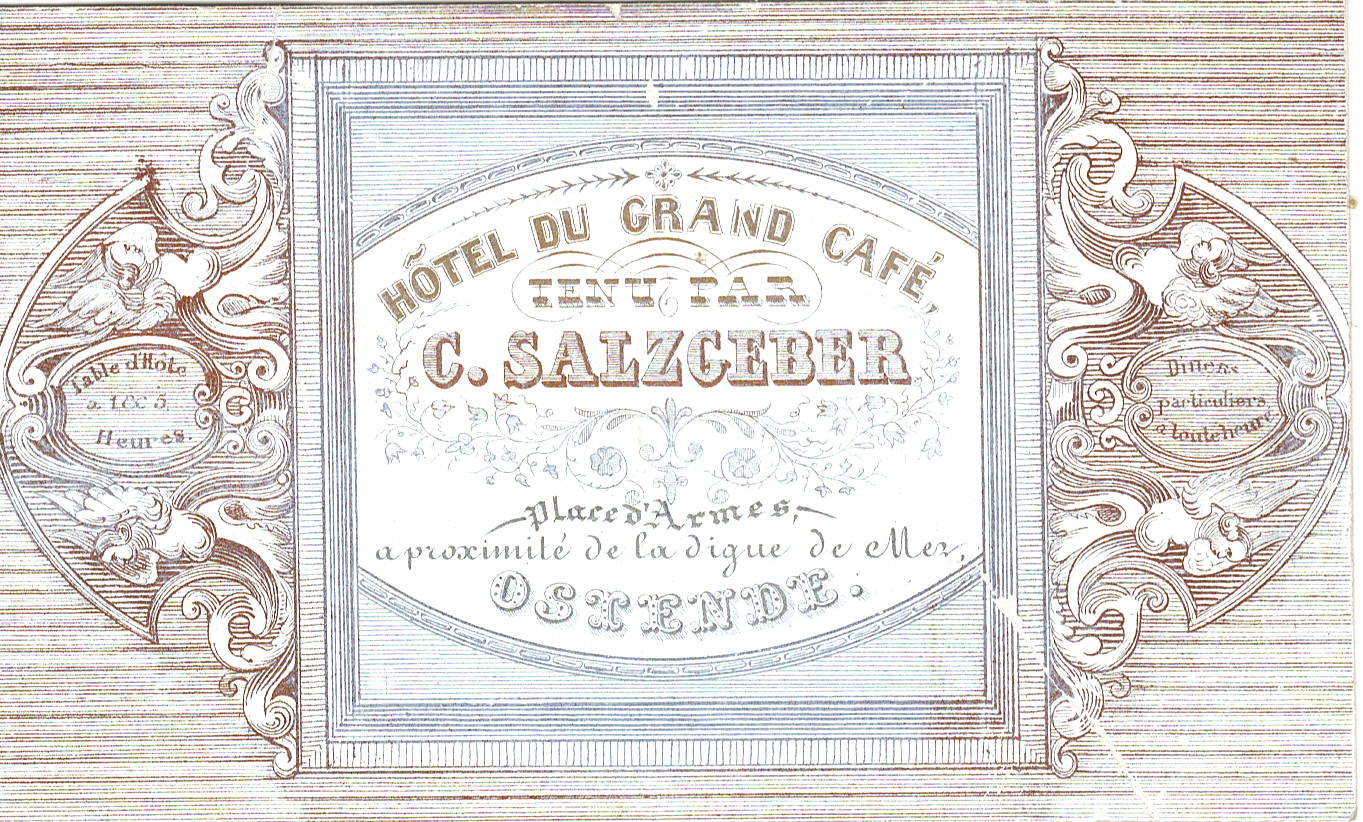 HÔTEL DU GRAND CAFÉ,
TENU PAR
C. SALZGEBER
Place d'Armes,
a proximité de la digue de Mer,
OSTENDE.
Table d'Hôte
a 1 & 5
Heures.
Diners
particuliers
a toute heure